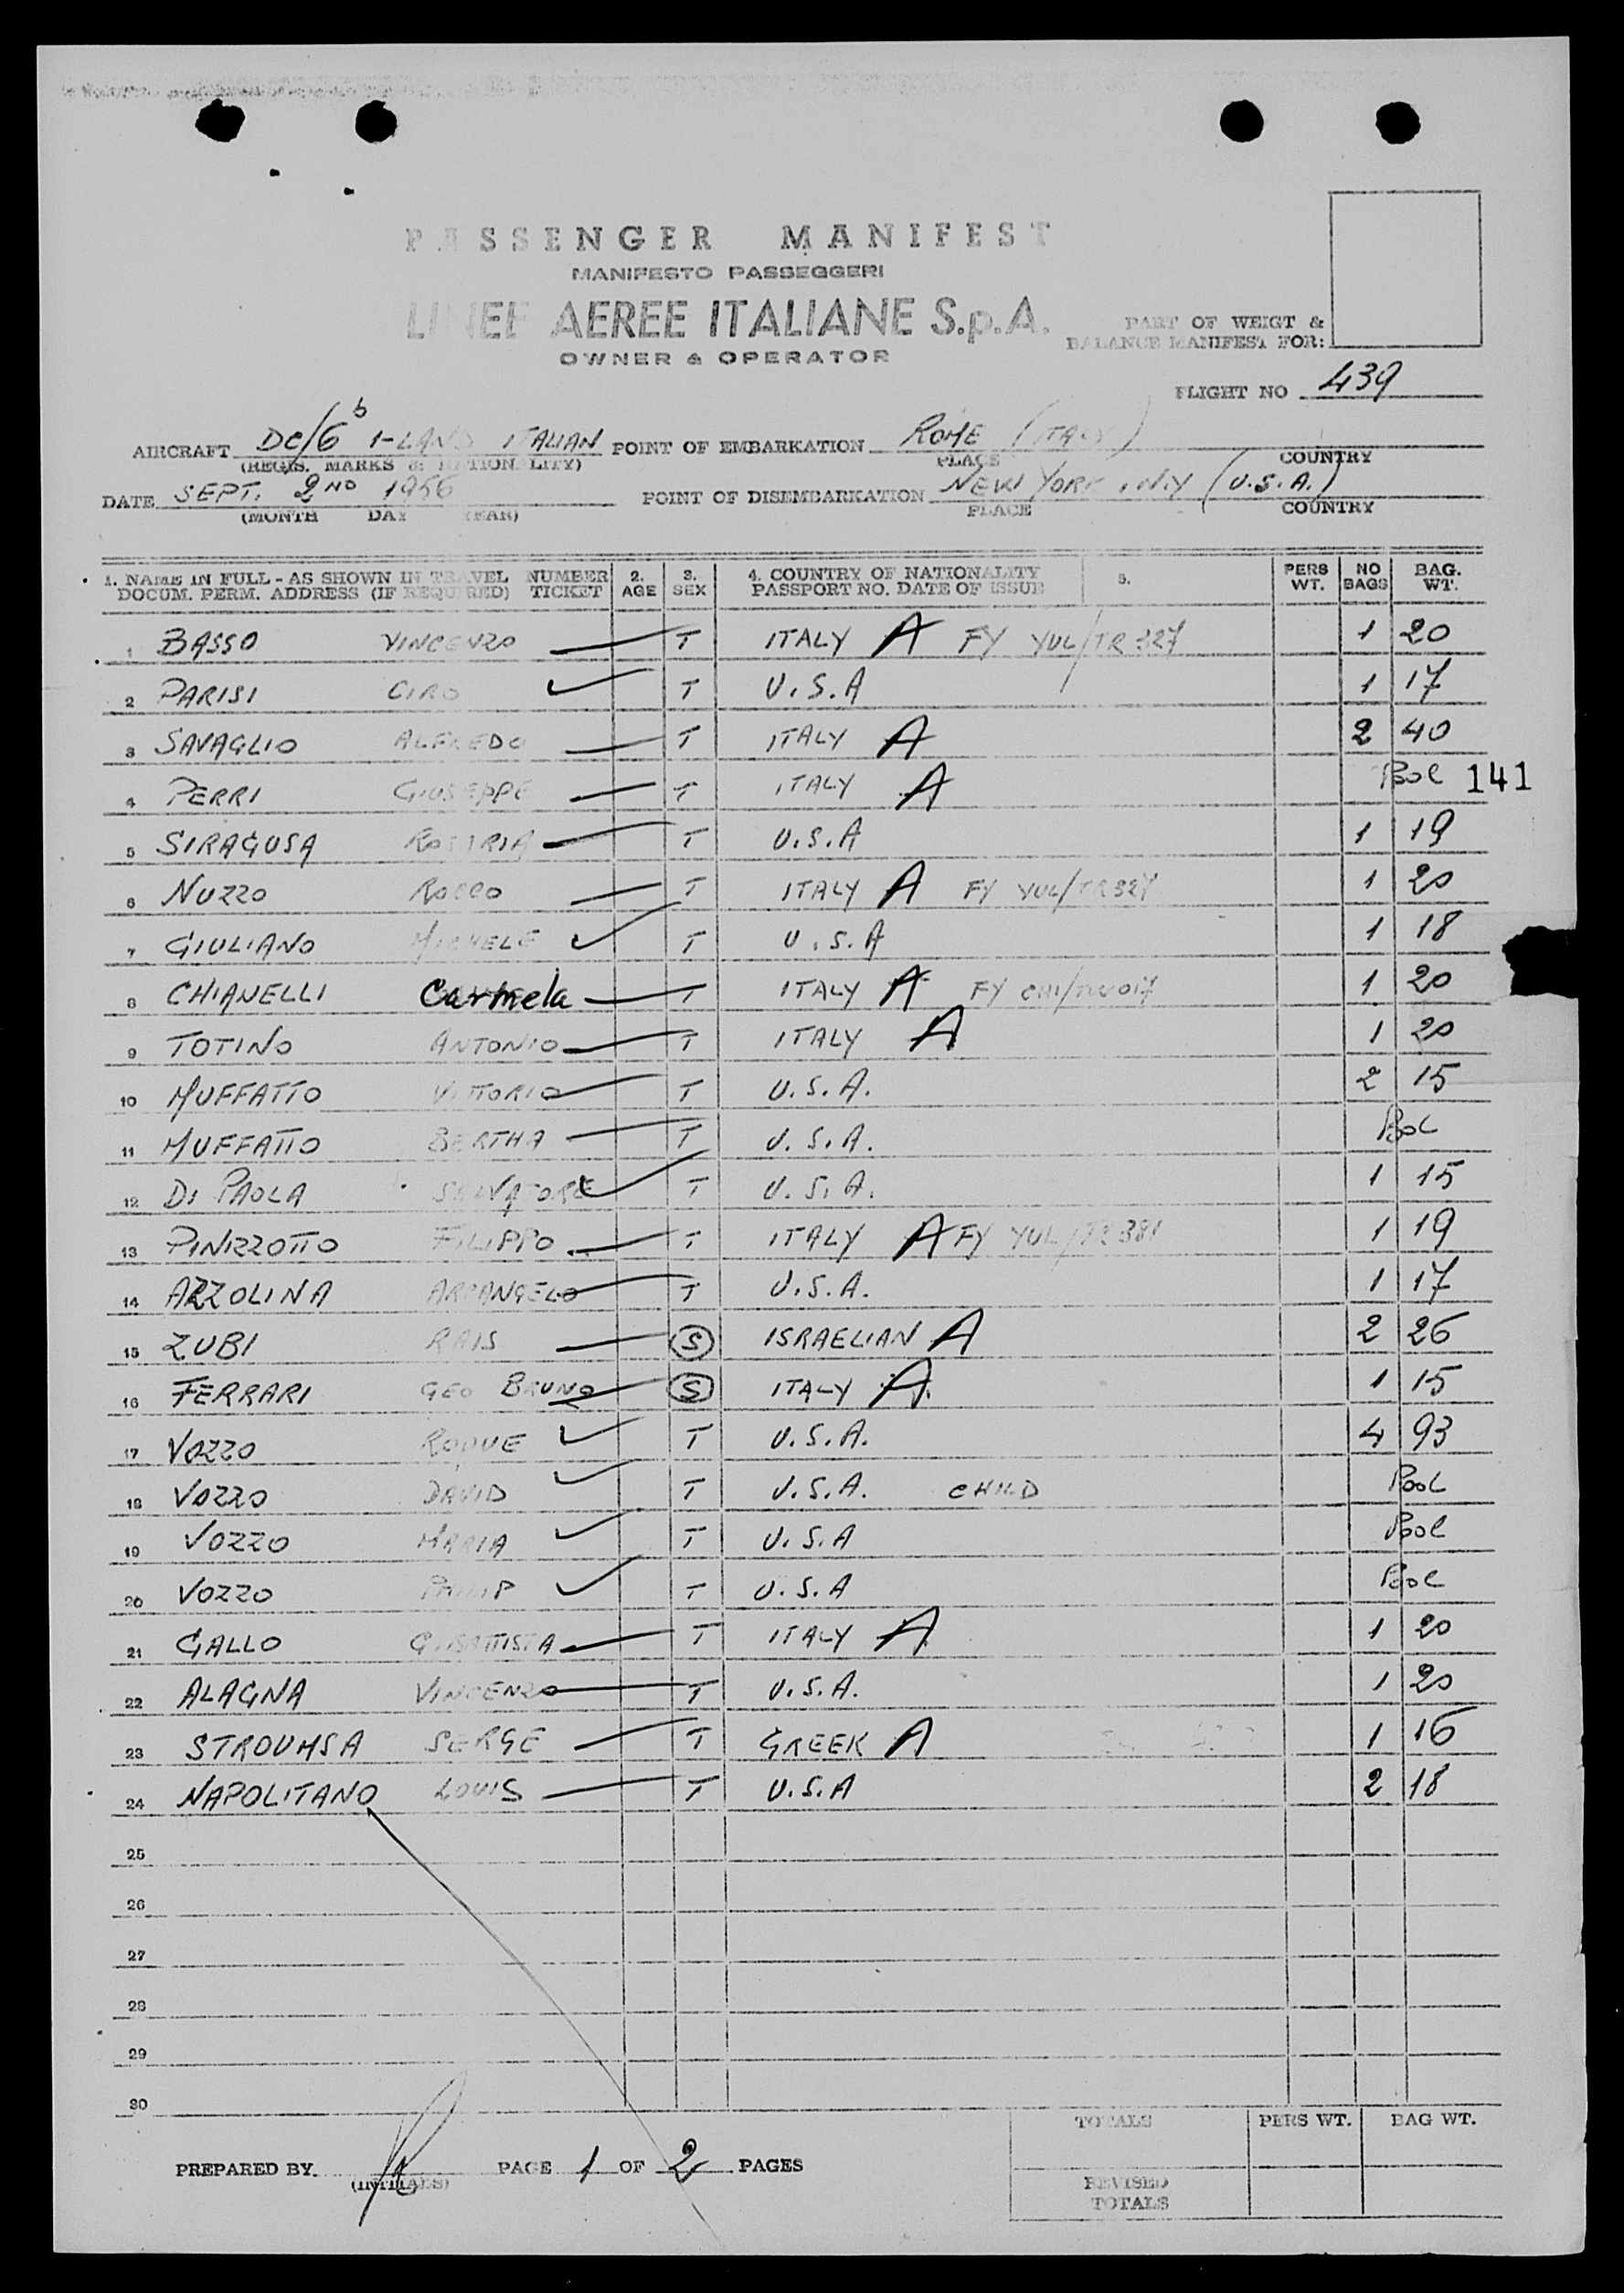 PASSENGER MANIFEST
MANIFESTO PASSEGGERI
LINEE AEREE ITALIANE S.p.A.
OWNER & OPERATOR
PART OF WEIGT &
BALANCE MANIFEST FOR:
FLIGHT NO 439
AIRCRAFT DC/6b I-LAND ITALIAN POINT OF EMBARKATION ROME (ITALY)
(REGIS. MARKS & NATIONALITY) PLACE COUNTRY
DATE SEPT. 2ND 1956 POINT OF DISEMBARKATION NEW YORK, N.Y (U.S.A.)
(MONTH DAY YEAR) PLACE COUNTRY
1. NAME IN FULL - AS SHOWN IN TRAVEL NUMBER 2. 3. 4. COUNTRY OF NATIONALITY 5. PERS NO BAG.
DOCUM. PERM. ADDRESS (IF REQUIRED) TICKET AGE SEX PASSPORT NO. DATE OF ISSUE WT. BAGS WT.
1 BASSO VINCENZO T ITALY A FY YUL/TR 327 1 20
2 PARISI CIRO T U.S.A 1 17
3 SAVAGLIO ALFREDO T ITALY A 2 40
4 PERRI GIUSEPPE T ITALY A Pool 141
5 SIRAGUSA ROSARIA T U.S.A 1 19
6 NUZZO ROCCO T ITALY A FY YUL/TR327 1 20
7 GIULIANO MICHELE T U.S.A 1 18
8 CHIANELLI Carmela T ITALY A FY CHI/ 1 20
9 TOTINO ANTONIO T ITALY A 1 20
10 MUFFATTO VITTORIO T U.S.A. 2 15
11 MUFFATTO BERTHA T U.S.A. Pool
12 DI PAOLA SALVATORE T U.S.A. 1 15
13 PINIZZOTTO FILIPPO T ITALY A FY YUL/TR 381 1 19
14 AZZOLINA ARCANGELO T U.S.A. 1 17
15 ZUBI RAIS S ISRAELIAN A 2 26
16 FERRARI GEO BRUNO S ITALY A 1 15
17 VOZZO ROQUE T U.S.A. 4 93
18 VOZZO DAVID T U.S.A. CHILD Pool
19 VOZZO MARIA T U.S.A Pool
20 VOZZO PHILIP T U.S.A Pool
21 GALLO G.BATTISTA T ITALY A 1 20
22 ALAGNA VINCENZO T U.S.A. 1 20
23 STROUMSA SERGE T GREEK A 1 16
24 NAPOLITANO LOUIS T U.S.A 2 18
25
26
27
28
29
30
TOTALS PERS WT. BAG WT.
PREPARED BY. (INITIALS) PAGE 1 OF 2 PAGES
REVISED
TOTALS